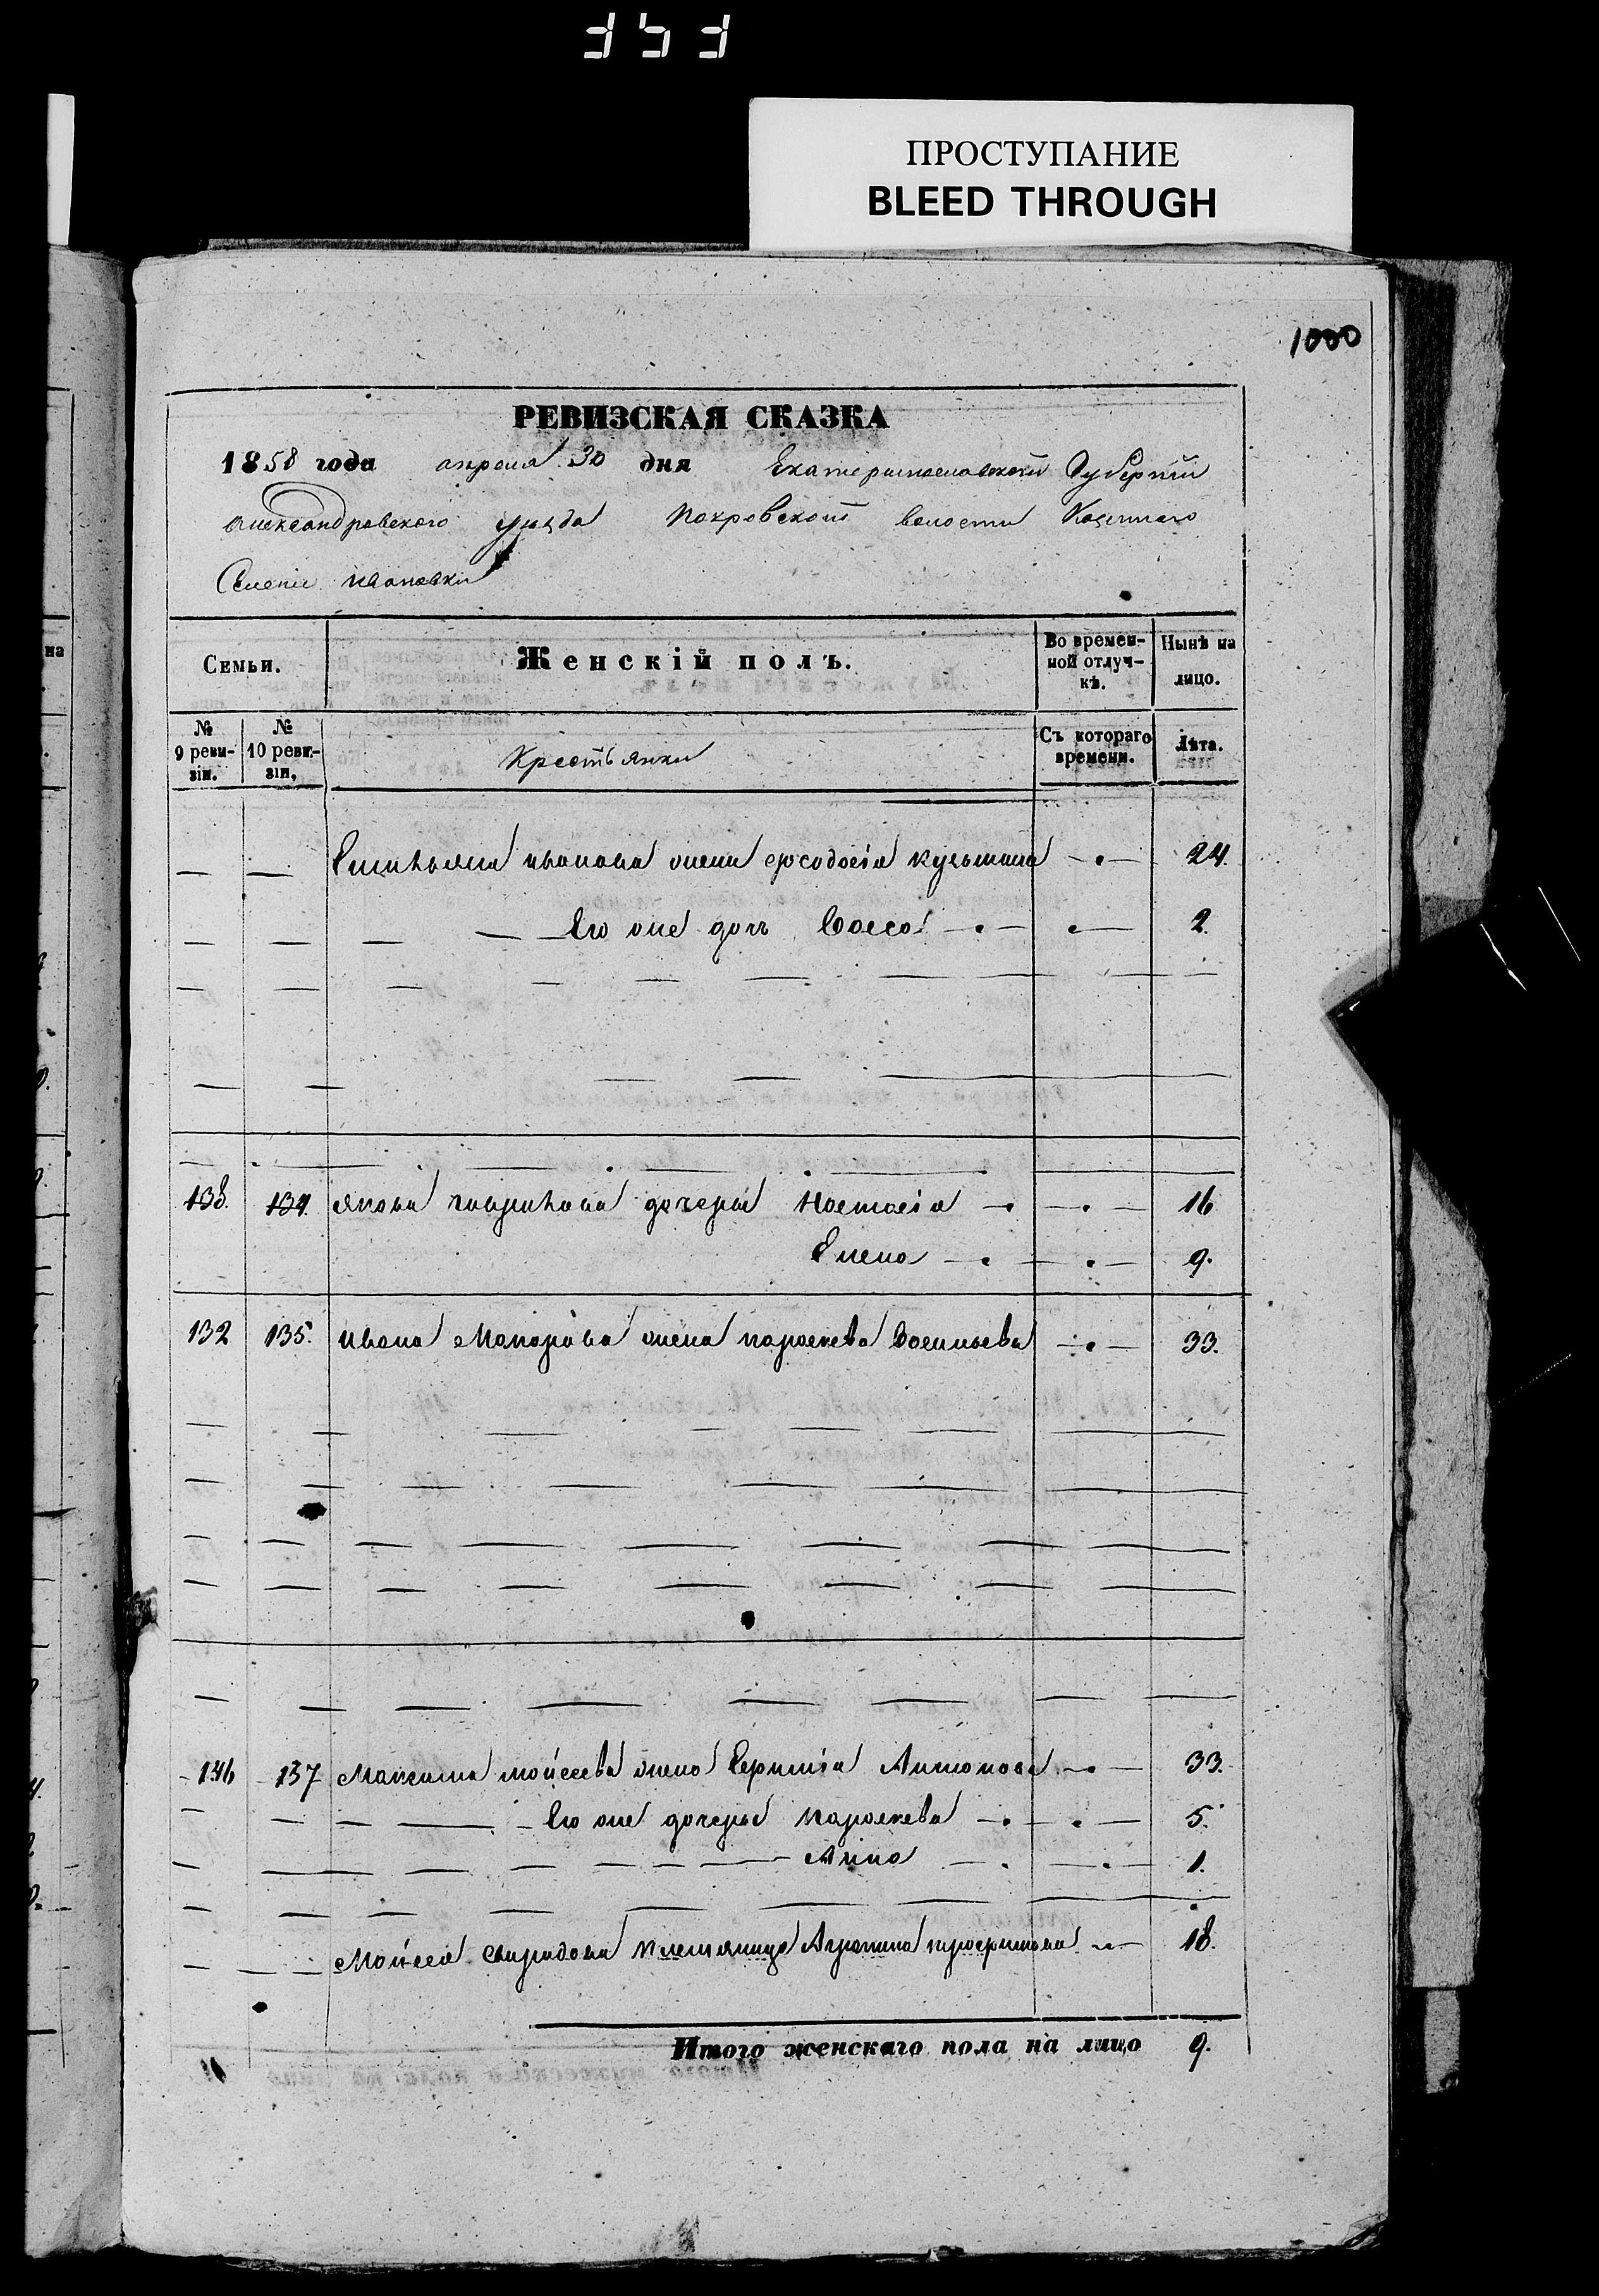 ПРОСТУПАНИЕ
BLEED THROUGH
1000
РЕВИЗСКАЯ СКАЗКА
1858 года апреля 30 дня Екатеринославской Губернии
Александровского уезда Покровской волости Казенного
Селения Ивановки
Семьи. Женскій полъ. Во времен- Нынѣ на
ной отлуч- лицо.
кѣ.
№ № Съ котораго Лѣта.
9 реви- 10 реви- Крестьянки времени.
зіи. зіи.
Емильяна Иванова жена Феодосія Кузьмина 24.
Его же дочь Васса 2.
138. 134. Якова Гаврилова дочери Настасія 16
Елена 9.
132 135. Ивана Макарова жена Параскева Васильева 33.
136 137 Максима Мойсеева жена Антонова 33.
Его же дочери Параскева 5.
Анна 1.
Мойсея Свиридова племянница 18.
Итого женскаго пола на лицо 9.